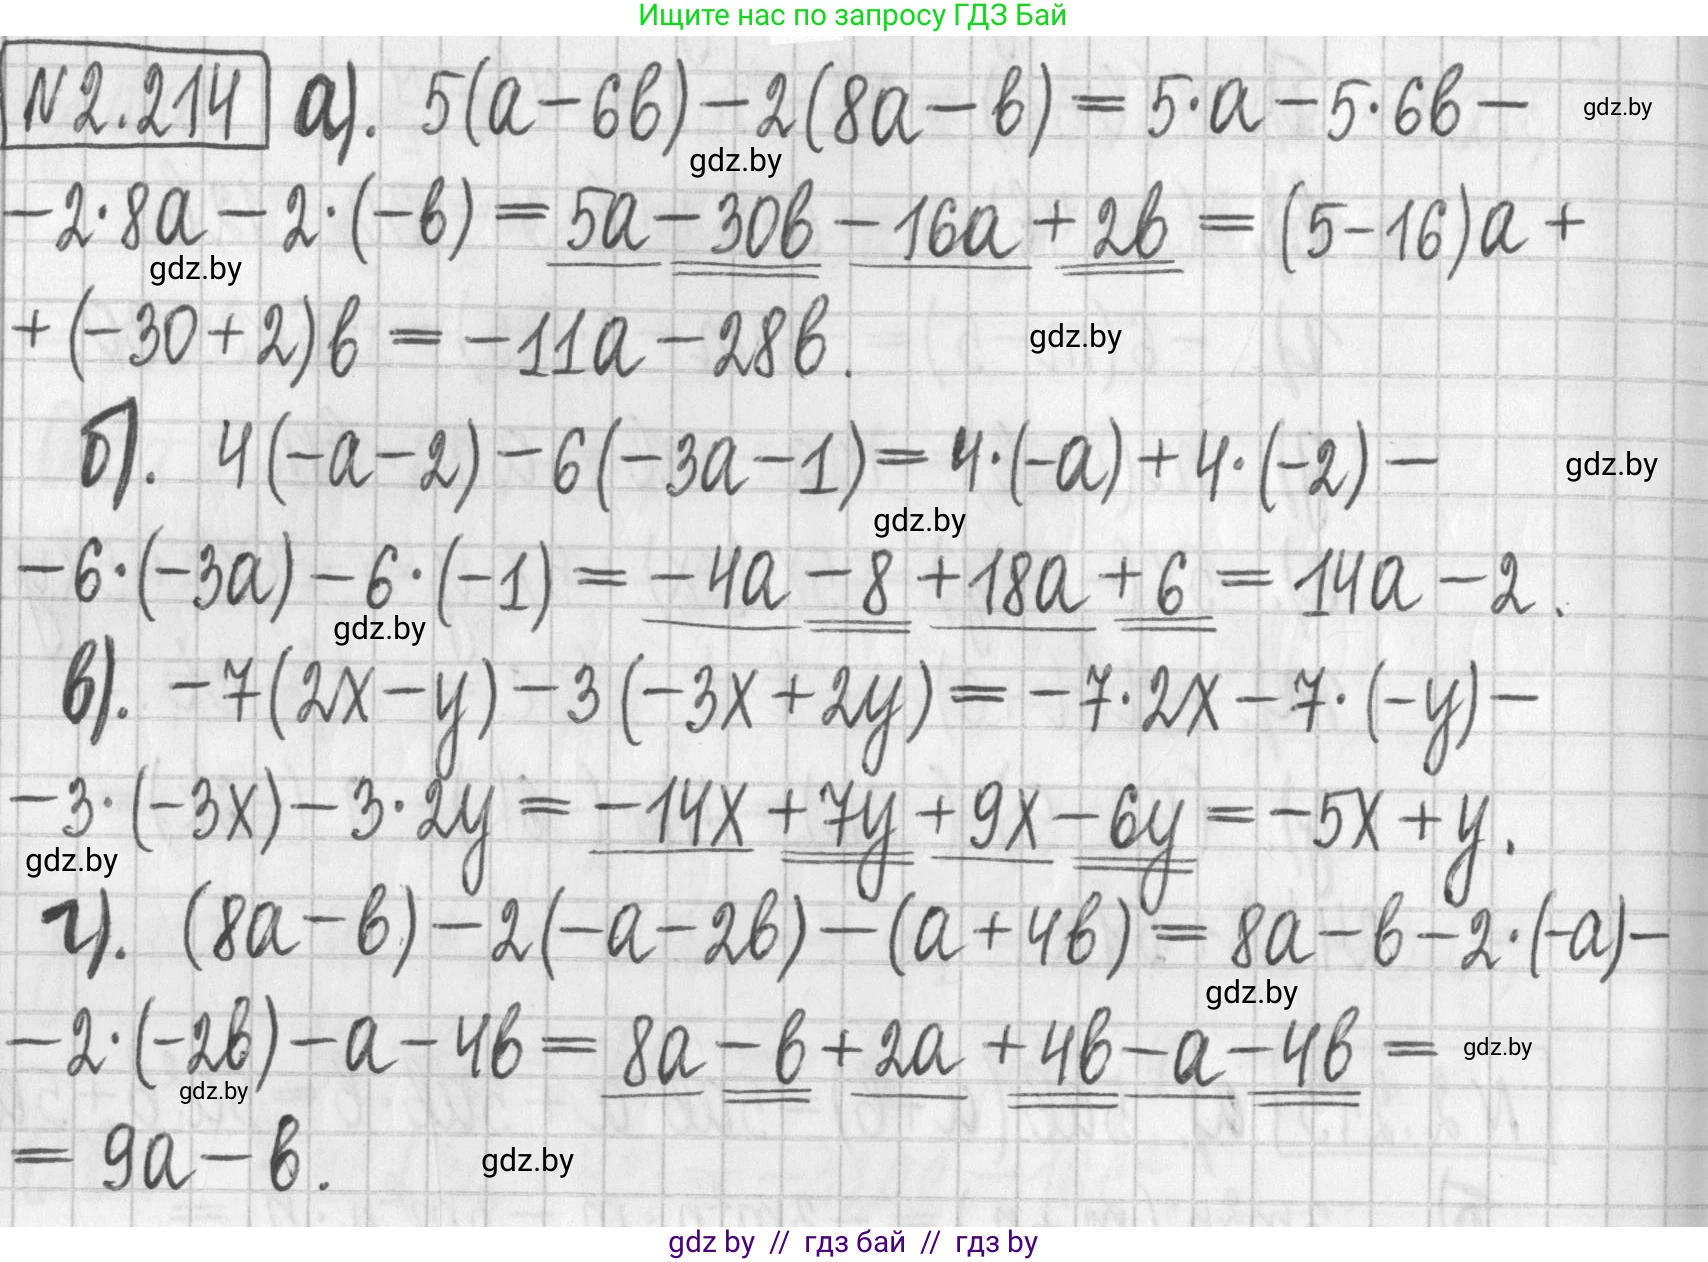 Ищите нас по запросу ГДЗ Бай
N2.214 а). 5(a-6b)-2(8a-b)=5·a-5·6b- gdz.by
gdz.by
-2·8a-2·(-b)=5a-30b-16a+2b=(5-16)a+
gdz.by
+(-30+2)b=-11a-28b. gdz.by
б). 4(-a-2)-6(-3a-1)=4·(-a)+4·(-2)- gdz.by
gdz.by
-6·(-3a)-6·(-1)=-4a-8+18a+6=14a-2.
gdz.by
в). -7(2x-y)-3(-3x+2y)=-7·2x-7·(-y)-
-3·(-3x)-3·2y=-14x+7y+9x-6y=-5x+y.
gdz.by
г). (8a-b)-2(-a-2b)-(a+4b)=8a-b-2·(-a)-
gdz.by
-2·(-2b)-a-4b=8a-b+2a+4b-a-4b= gdz.by
gdz.by
=9a-b. gdz.by
gdz by // гдз бай // гдз by